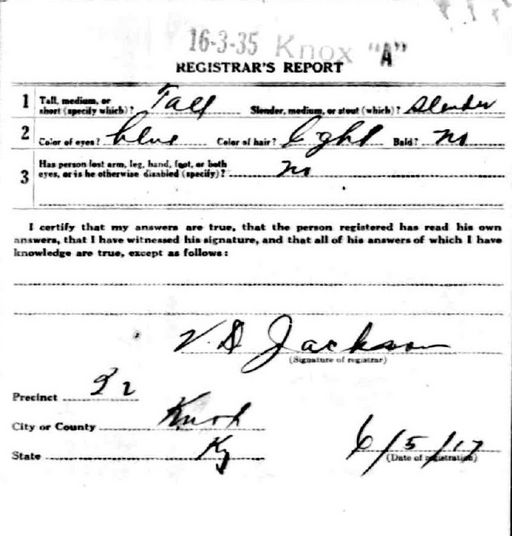 16-3-35 Knox "A"
REGISTRAR'S REPORT
1 Tall, medium, or short (specify which)? Tall Slender, medium, or stout (which)? Slender
2 Color of eyes? blue Color of hair? Light Bald? no
3 Has person lost arm, leg, hand, foot, or both eyes, or is he otherwise disabled (specify)? no
I certify that my answers are true, that the person registered has read his own
answers, that I have witnessed his signature, and that all of his answers of which I have
knowledge are true, except as follows:
V. D Jackson
(Signature of registrar)
Precinct 32
City or County Knox
State Ky 6/5/17
(Date of registration)